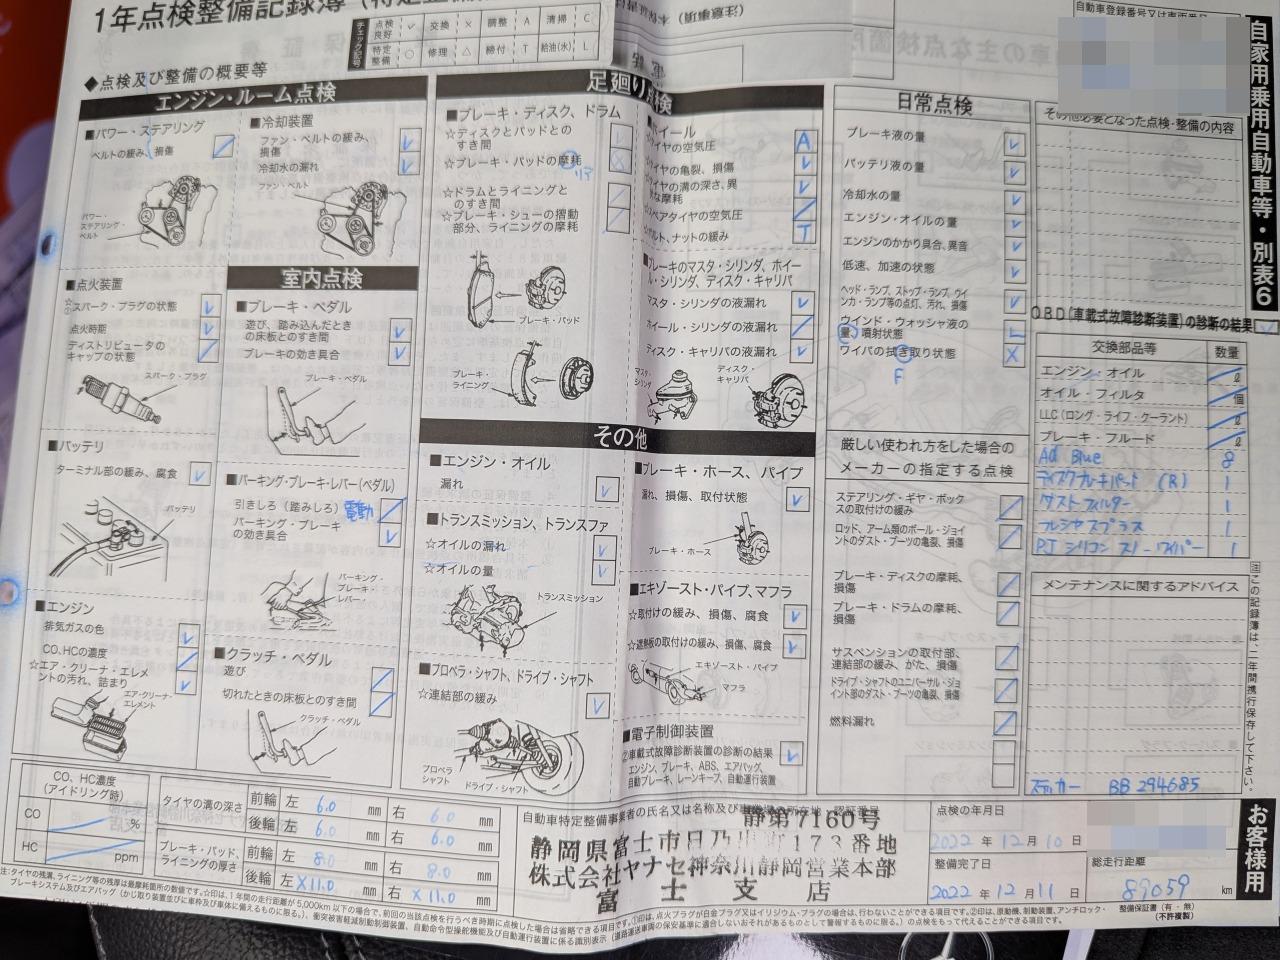 1年点検整備記録簿
チェック記号
点検良好 レ 交換 × 調整 A 清掃 C
特定整備 ○ 修理 △ 締付 T 給油(水) L
自動車登録番号又は車両番号
自家用乗用自動車等・別表6
◆点検及び整備の概要等
エンジン・ルーム点検
■パワー・ステアリング
ベルトの緩み、損傷
パワー・ステアリング・ベルト
■冷却装置
ファン・ベルトの緩み、損傷
冷却水の漏れ
ファン・ベルト
■点火装置
スパーク・プラグの状態
点火時期
ディストリビュータのキャップの状態
スパーク・プラグ
■バッテリ
ターミナル部の緩み、腐食
バッテリ
■エンジン
排気ガスの色
CO、HCの濃度
☆エア・クリーナ・エレメントの汚れ、詰まり
エア・クリーナ・エレメント
室内点検
■ブレーキ・ペダル
遊び、踏み込んだときの床板とのすき間
ブレーキの効き具合
ブレーキ・ペダル
■パーキング・ブレーキ・レバー(ペダル)
引きしろ(踏みしろ) 電動
パーキング・ブレーキの効き具合
パーキング・ブレーキ・レバー
■クラッチ・ペダル
遊び
切れたときの床板とのすき間
クラッチ・ペダル
足廻り点検
■ブレーキ・ディスク、ドラム
☆ディスクとパッドとのすき間
☆ブレーキ・パッドの摩耗
リア
☆ドラムとライニングとのすき間
☆ブレーキ・シューの摺動部分、ライニングの摩耗
ブレーキ・パッド
ブレーキ・ライニング
ホイール
タイヤの空気圧 A
タイヤの亀裂、損傷
タイヤの溝の深さ、異常な摩耗
スペアタイヤの空気圧
ボルト、ナットの緩み T
ブレーキのマスタ・シリンダ、ホイール・シリンダ、ディスク・キャリパ
マスタ・シリンダの液漏れ
ホイール・シリンダの液漏れ
ディスク・キャリパの液漏れ
マスタ・シリンダ
ディスク・キャリパ
その他
■エンジン・オイル
漏れ
■トランスミッション、トランスファ
☆オイルの漏れ
☆オイルの量
トランスミッション
■プロペラ・シャフト、ドライブ・シャフト
☆連結部の緩み
プロペラシャフト
ドライブ・シャフト
■ブレーキ・ホース、パイプ
漏れ、損傷、取付状態
ブレーキ・ホース
■エキゾースト・パイプ、マフラ
☆取付けの緩み、損傷、腐食
☆遮熱板の取付けの緩み、損傷、腐食
エキゾースト・パイプ
マフラ
■電子制御装置
②車載式故障診断装置の診断の結果
エンジン、ブレーキ、ABS、エアバッグ、自動ブレーキ、レーンキープ、自動運行装置
日常点検
ブレーキ液の量
バッテリ液の量
冷却水の量
エンジン・オイルの量
エンジンのかかり具合、異音
低速、加速の状態
ヘッド・ランプ、ストップ・ランプ、ウインカ・ランプ等の点灯、汚れ、損傷
ウインド・ウォッシャ液の量、噴射状態 L
ワイパの拭き取り状態 X
F
厳しい使われ方をした場合のメーカーの指定する点検
ステアリング・ギヤ・ボックスの取付けの緩み
ロッド、アーム類のボール・ジョイントのダスト・ブーツの亀裂、損傷
ブレーキ・ディスクの摩耗、損傷
ブレーキ・ドラムの摩耗、損傷
サスペンションの取付部、連結部の緩み、がた、損傷
ドライブ・シャフトのユニバーサル・ジョイント部のダスト・ブーツの亀裂、損傷
燃料漏れ
その他必要となった点検・整備の内容
OBD(車載式故障診断装置)の診断の結果
交換部品等 数量
エンジン・オイル ℓ
オイル・フィルタ 個
LLC(ロング・ライフ・クーラント) ℓ
ブレーキ・フルード ℓ
Ad Blue 8
ディスクブレーキパット (R) 1
ダストフィルター 1
フレシヤスプラス 1
PJ シリコン スノーワイパー 1
メンテナンスに関するアドバイス
ステッカー BB 294685
注 この記録簿は、二年間携行保存して下さい。
お客様用
CO、HC濃度(アイドリング時)
CO %
HC ppm
タイヤの溝の深さ
前輪 左 6.0 mm 右 6.0 mm
後輪 左 6.0 mm 右 6.0 mm
ブレーキ・パッド、ライニングの厚さ
前輪 左 8.0 mm 右 8.0 mm
後輪 左 ×11.0 mm 右 ×11.0 mm
静第7160号
株式会社ヤナセ神奈川静岡営業本部
富士支店
点検の年月日
2022 年 12 月 10 日
整備完了日
2022 年 12 月 11 日
総走行距離
89059 km
整備保証書(有・無)
(不許複製)